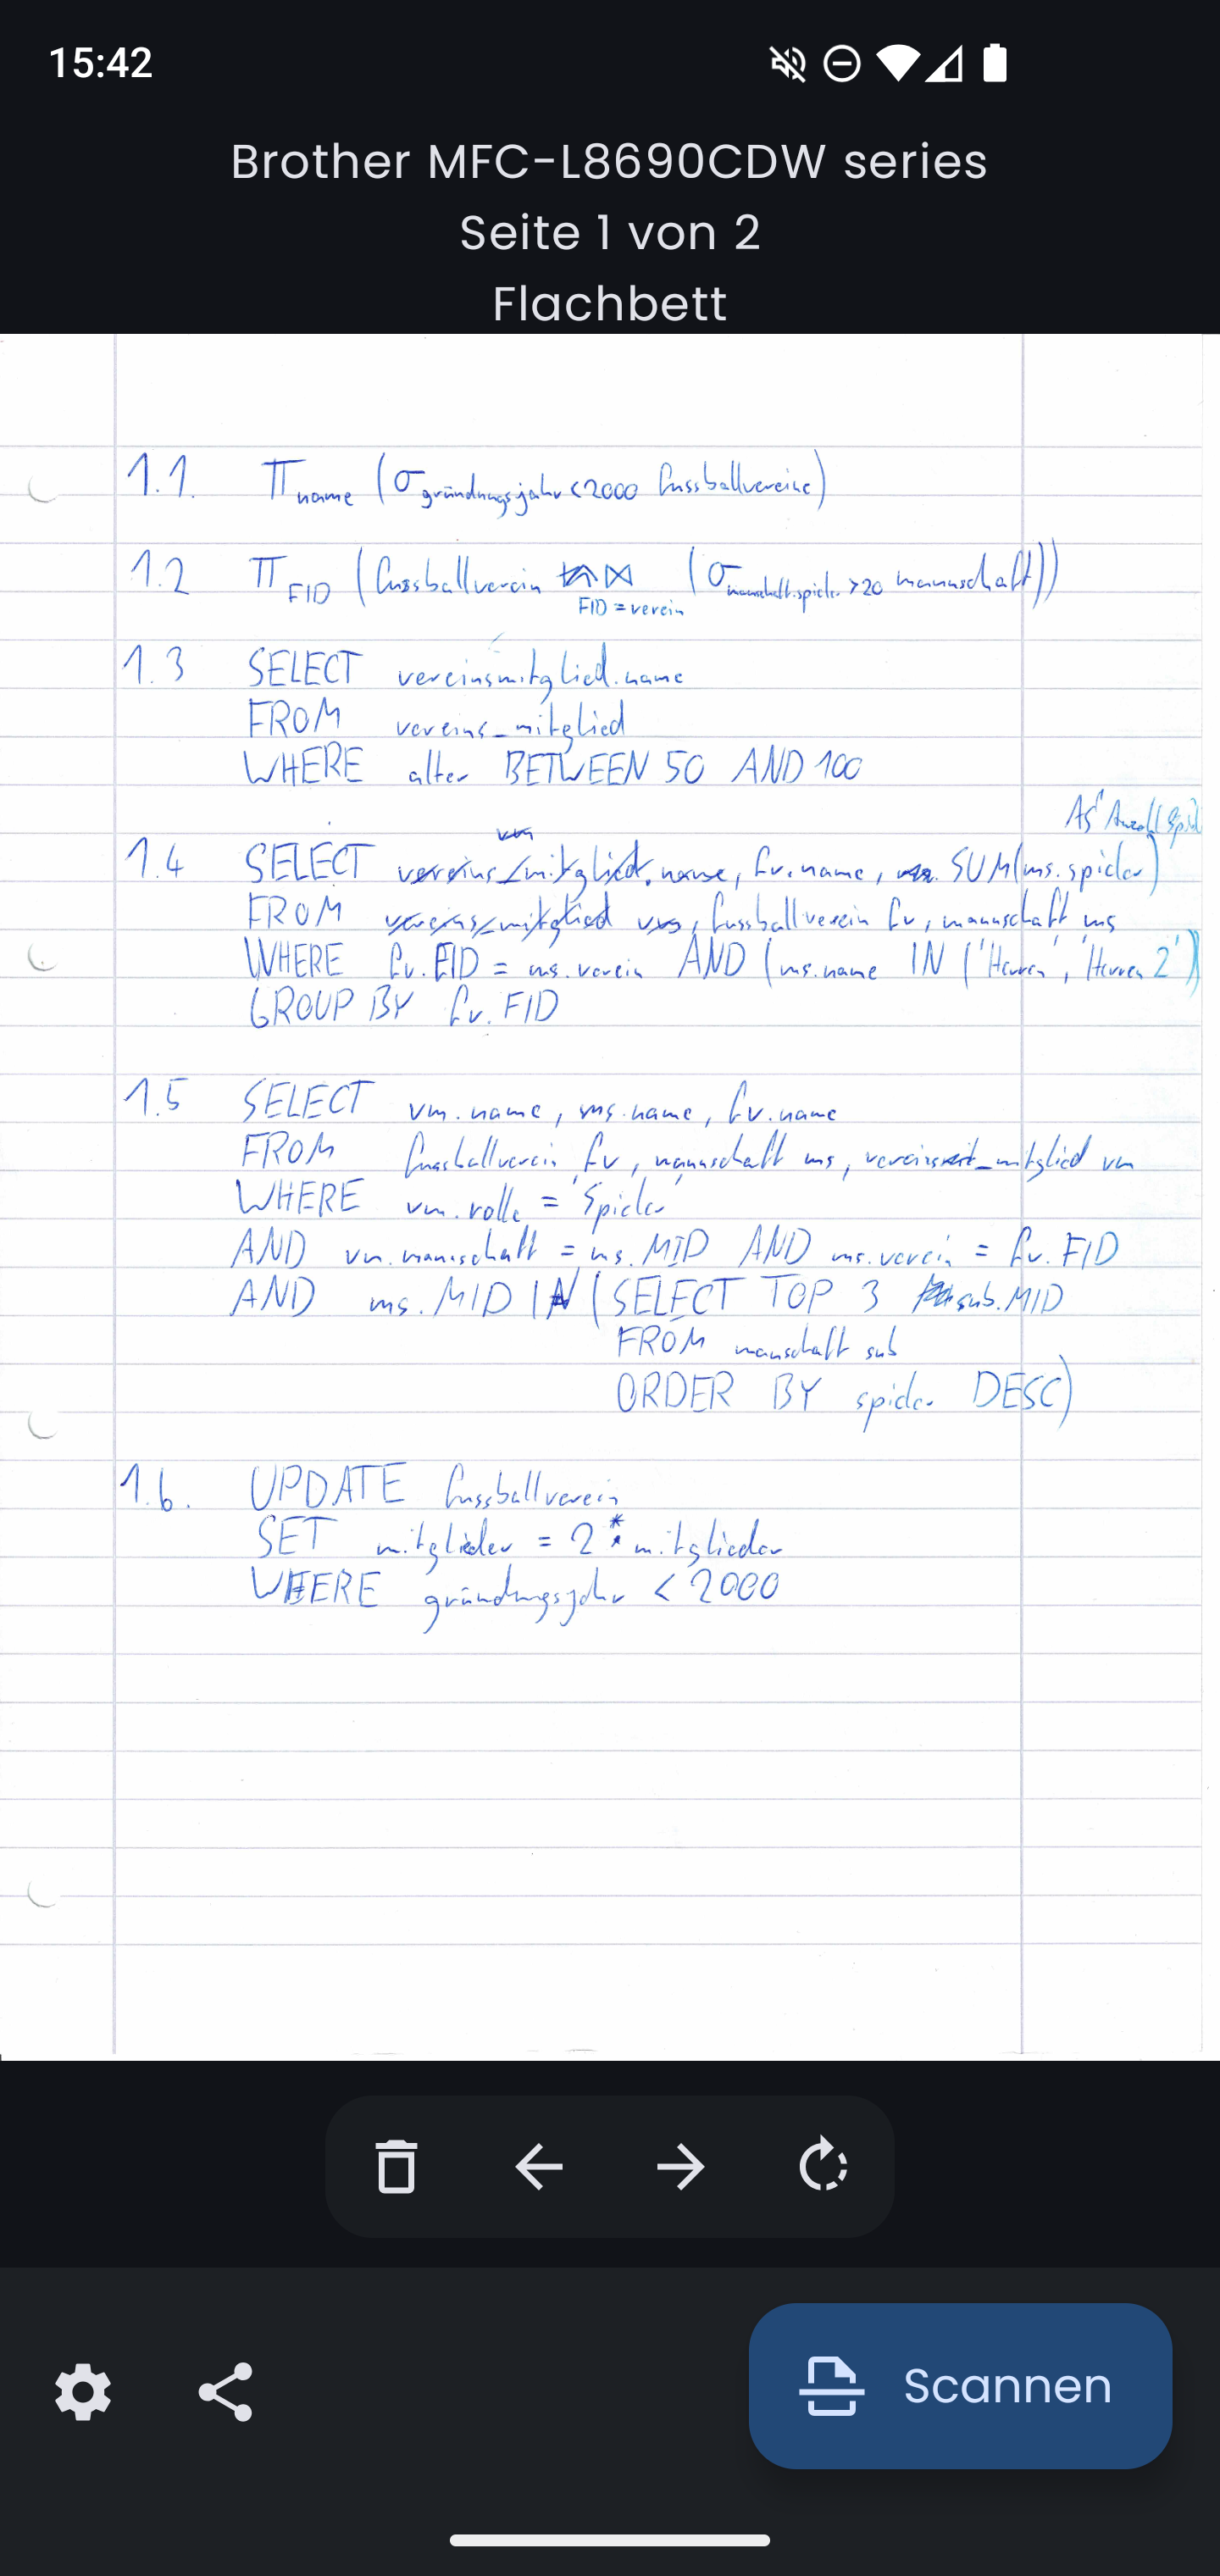 15:42
Brother MFC-L8690CDW series
Seite 1 von 2
Flachbett
1.1. π name (σ gründungsjahr <2000 fussballvereine)
1.2 π FID (fussballverein ⋈ FID = verein (σ mannschaft.spieler >20 mannschaft))
1.3 SELECT vereinsmitglied.name
FROM vereins_mitglied
WHERE alter BETWEEN 50 AND 100
AS Anzahl Spiel
1.4 SELECT fv.name, SUM(ms.spieler)
FROM fussballverein fv, mannschaft ms
WHERE fv.FID = ms.verein AND (ms.name IN ('Herren', 'Herren 2')
GROUP BY fv.FID
1.5 SELECT vm.name, ms.name, fv.name
FROM fussballverein fv, mannschaft ms, vereins_mitglied vm
WHERE vm.rolle = 'Spieler'
AND vm.mannschaft = ms.MID AND ms.verein = fv.FID
AND ms.MID IN (SELECT TOP 3 sub.MID
FROM manschaft sub
ORDER BY spieler DESC)
1.6. UPDATE fussballverein
SET mitglieder = 2 * mitglieder
WHERE gründungsjahr < 2000
Scannen